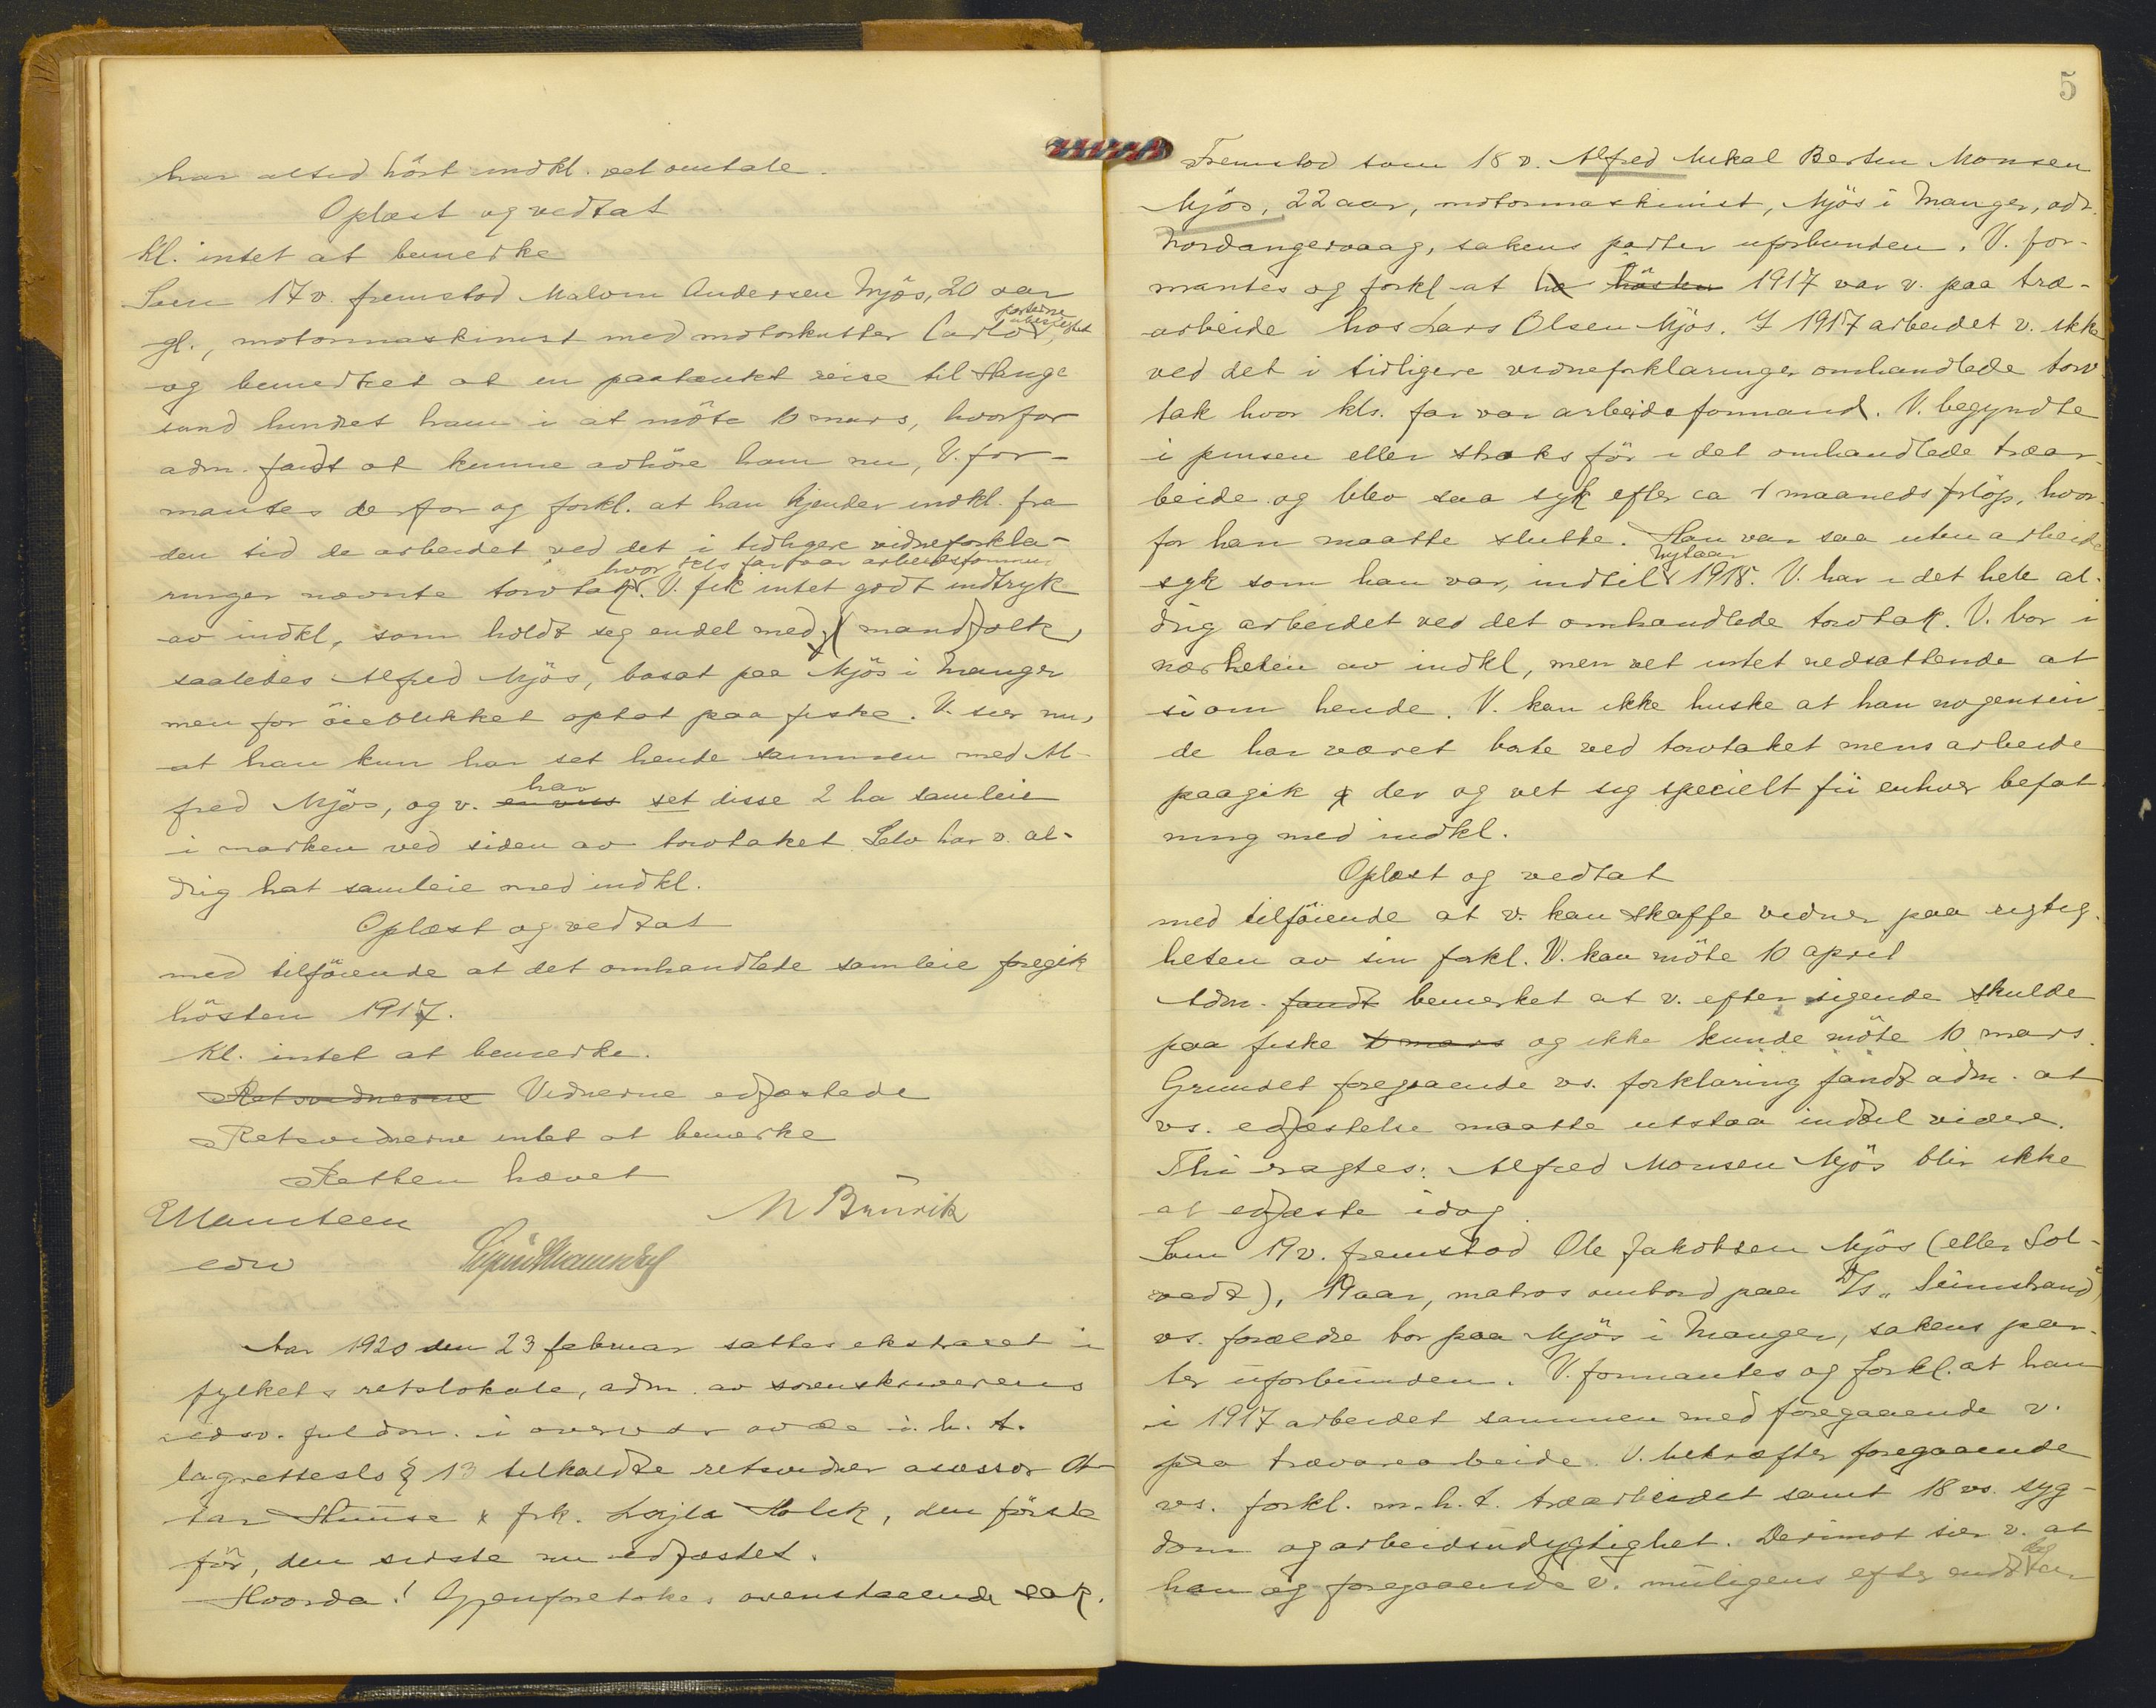 har altid hört indkl. vel omtale.
Oplæst og vedtat
Kl. intet at bemerke
Som 17 v. fremstod Malvin Andersen Mjös, 20 aar
gl., motormaskinist med motorkutter Carlo, parterne uberegtet
og bemerket at en paatænkt reise til Hauge
sund hindret ham i at möte 10 mars, hvorfor
adm. fandt at kunne avhöre ham nu, V. for-
mantes derfor og forkl. at han kjender indkl. fra
den tid de arbeidet ved det i tidligere vidneforkla-
hvor kls far var arbeidsforman
ringer nævnte torvtak. V. fik intet godt indtryk
av indkl, som holdt seg endel med mandfolk,
saaledes Alfred Mjös, bosat paa Mjös i Manger
men for öieblikket optat paa fiske. V. sier nu,
at han kun har set hende sammen med Al-
har
fred Mjös, og v. en viss set disse 2 ha samleie
i marken ved siden av torvtaket. Selv har v. al-
drig hat samleie med indkl.
Oplæst og vedtat
med tilföiende at det omhandlede samleie foregik
hösten 1917.
Kl. intet at bemerke.
Retsvidnerne Vidnerne edfæstede
Retsvidnerne intet at bemerke
Retten hævet
edw
Aar 1920 den 23 februar sattes ekstraret i
fylkets retslokale, adm. av sorenskriverens
edsv. fuldm. i overvær av de i. h. t.
lagretteslo § 13 tilkaldte retsvidner assessor Ot-
tar Huuse & frk. Lajla Holck, den förste
för, den sidste nu edfæstet.
Hvorda! Gjenforetokes ovenstaaende sak.
5
Fremstod som 18 v. Alfred Mikal Berten Monsen
Mjös, 22 aar, motormaskinist, Mjös i Manger, adr.
Nordangervaag, sakens parter uforbunden. V. for-
mantes og forkl. at hösten 1917 var v. paa træ-
arbeide hos Lars Olsen Mjös. I 1917 arbeidet v. ikke
ved det i tidligere vidneforklaringer omhandlede torv
tak hvor kls. far var arbeidsformand. V. begyndte
i pinsen eller straks för i det omhandlede træar-
beide og blev saa syk efter ca 1 maaneds forlöp, hvor-
for han maatte slutte. Han var saa uten arbeide
nytaar
syk som han var, indtil 1918. V. har i det hele al-
drig arbeidet ved det omhandlede torvtak. V. bor i
nærheten av indkl, men vet intet nedsattende at
si om hende. V. kan ikke huske at han nogensin-
de har været borte ved torvtaket mens arbeide
paagik der og vet sig specielt fri enhver befat-
ning med indkl.
Oplæst og vedtat
med tilföiende at v. kan skaffe vidner paa rigtig-
heten av sin forkl. V. kan möte 10 april
Adm. fandt bemerket at v. efter sigende skulde
paa fiske 10 mars og ikke kunde möte 10 mars.
Grundet foregaaende vs. forklaring fandt adm. at
vs. edfæstelse maatte utstaa indtil videre.
Thi ragtes: Alfred Monsen Mjös blir ikke
at edfæste idag.
Som 19 v. fremstod Ole Jakobsen Mjös (eller Sol-
vedt), 19 aar, matros ombord paa D/s „Seimstrand"
vs. forældre bor paa Mjös i Manger, sakens par-
ter uforbunden. V. formantes og forkl. at han
i 1917 arbeidet sammen med foregaaende v.
paa trævarearbeide. V. bekræfter foregaaende
vs. forkl. m. h. t. træarbeidet samt 18 vs. syg-
dom og arbeidsudygtighet. Derimot sier v. at
han og foregaaende v. muligens efter endt dag